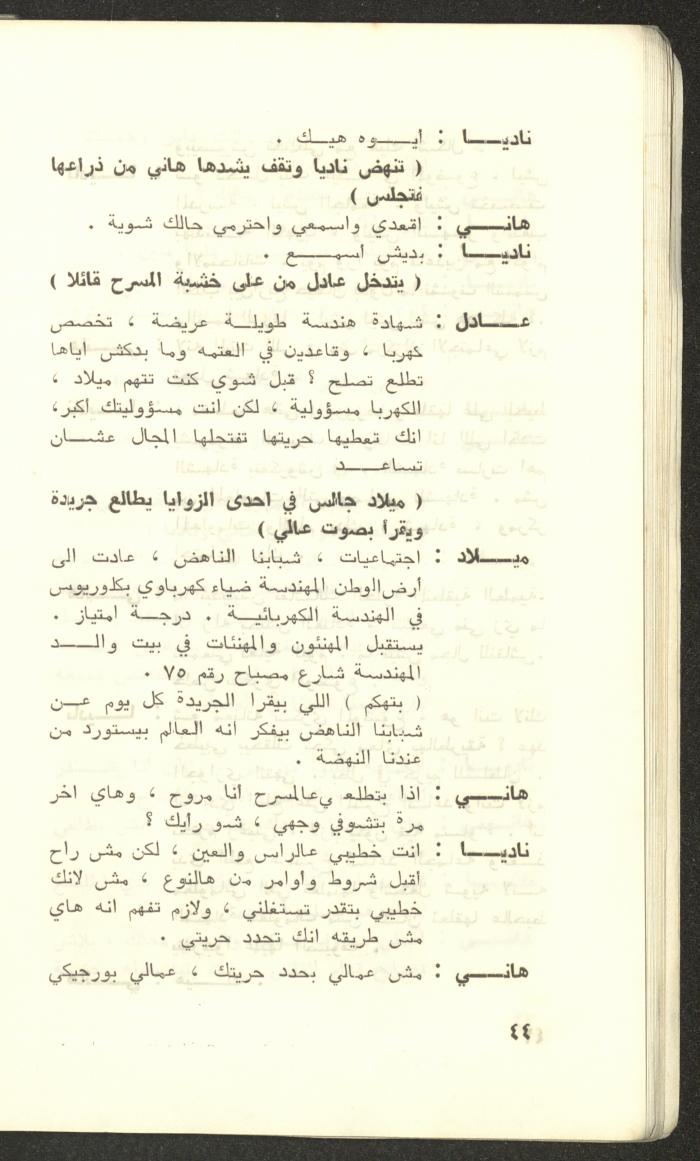 ناديـــا : ايـــوه هيـك .
( تنهض ناديا وتقف يشدها هاني من ذراعها
فتجلس )
هانـــي : اقعدي واسمعي واحترمي حالك شوية .
ناديـــا : بديش اسمـــع .
( يتدخل عادل من على خشبة المسرح قائلا )
عـــادل : شهادة هندسة طويلـة عريضة ، تخصص
كهربا ، وقاعدين في العتمه وما بدكش اياها
تطلع تصلح ؟ قبل شوي كنت تتهم ميلاد ،
الكهربا مسؤولية ، لكن انت مسؤوليتك أكبر،
انك تعطيها حريتها تفتحلها المجال عشـــان
تساعـــد
( ميلاد جالس في احدى الزوايا يطالع جريدة
ويقرأ بصوت عالي )
ميـــلاد : اجتماعيات ، شبابنا الناهض ، عادت الى
أرض الوطن المهندسة ضياء كهرباوي بكلوريوس
في الهندسة الكهربائيـة . درجـة امتياز .
يستقبل المهنئون والمهنئات في بيت والـــد
المهندسة شارع مصباح رقم ٧٥ .
( بتهكم ) اللي بيقرا الجريدة كل يوم عـــن
شبابنا الناهض بيفكر انه العالم بيستورد من
عندنا النهضة .
هانـــي : اذا بتطلعي عالمسرح أنا مروح ، وهاي اخر
مرة بتشوفي وجهي ، شو رأيك ؟
ناديـــا : انت خطيبي عالراس والعين ، لكن مش راح
أقبل شروط وأوامر من هالنوع ، مش لانك
خطيبي بتقدر تستغلني ، ولازم تفهم انه هاي
مش طريقه انك تحدد حريتي .
هانـــي : مش عمالي بحدد حريتك ، عمالي بورجيكي
٤٤